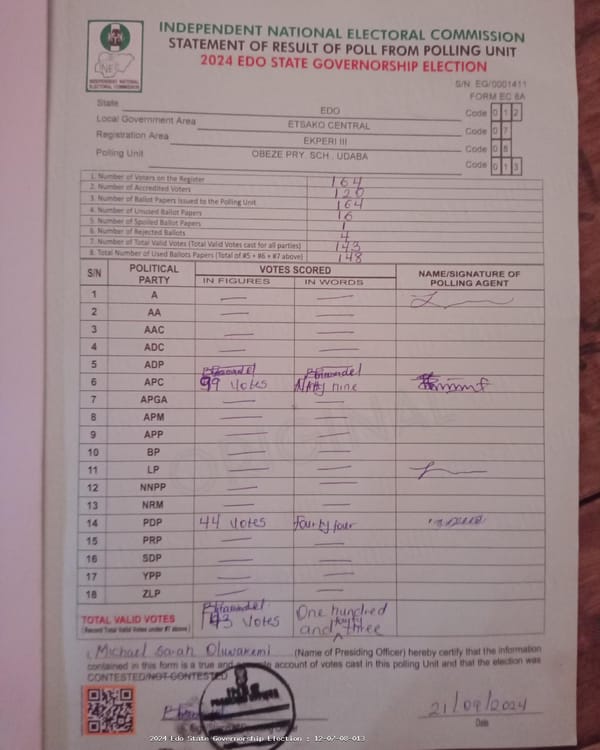 INDEPENDENT NATIONAL ELECTORAL COMMISSION
STATEMENT OF RESULT OF POLL FROM POLLING UNIT
2024 EDO STATE GOVERNORSHIP ELECTION
INEC
INDEPENDENT NATIONAL
ELECTORAL COMMISSION
S/N EG/0001411
FORM EC 8A
State EDO Code 0 1 2
Local Government Area ETSAKO CENTRAL Code 0 7
Registration Area EKPERI III Code 0 8
Polling Unit OBEZE PRY. SCH. UDABA Code 0 1 3
1. Number of Voters on the Register 164
2. Number of Accredited Voters 120
3. Number of Ballot Papers Issued to the Polling Unit 164
4. Number of Unused Ballot Papers 16
5. Number of Spoiled Ballot Papers 1
6. Number of Rejected Ballots 4
7. Number of Total Valid Votes (Total Valid Votes cast for all parties) 143
8. Total Number of Used Ballots Papers (Total of #5 + #6 + #7 above) 148
S/N POLITICAL PARTY VOTES SCORED NAME/SIGNATURE OF POLLING AGENT
IN FIGURES IN WORDS
1 A — —
2 AA — —
3 AAC — —
4 ADC — —
5 ADP — —
6 APC 99 votes Ninty nine
7 APGA — —
8 APM — —
9 APP — —
10 BP — —
11 LP — —
12 NNPP — —
13 NRM — —
14 PDP 44 votes Fourty four
15 PRP — —
16 SDP — —
17 YPP — —
18 ZLP — —
TOTAL VALID VOTES 143 votes One hundred and fourty three
(Record Total Valid Votes under #7 above)
I, Michael Sarah Oluwakemi (Name of Presiding Officer) hereby certify that the information
contained in this form is a true and account of votes cast in this polling Unit and that the election was
CONTESTED/NOT CONTESTED
21/09/2024
Date
2024 Edo State Governorship Election : 12-07-08-013